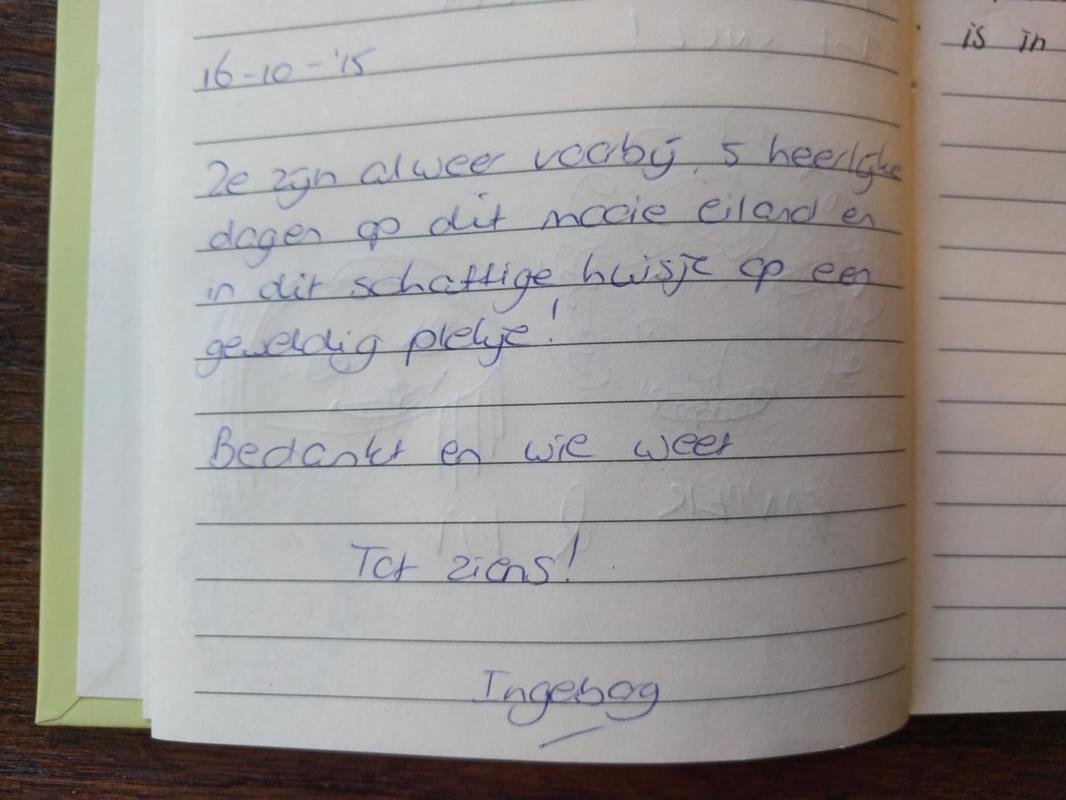 16-10-'15
Ze zijn alweer voorbij, 5 heerlijke
dagen op dit mooie eiland en
in dit schattige huisje op een
geweldig plekje!
Bedankt en wie weet
Tot ziens!
Ingeborg
is in